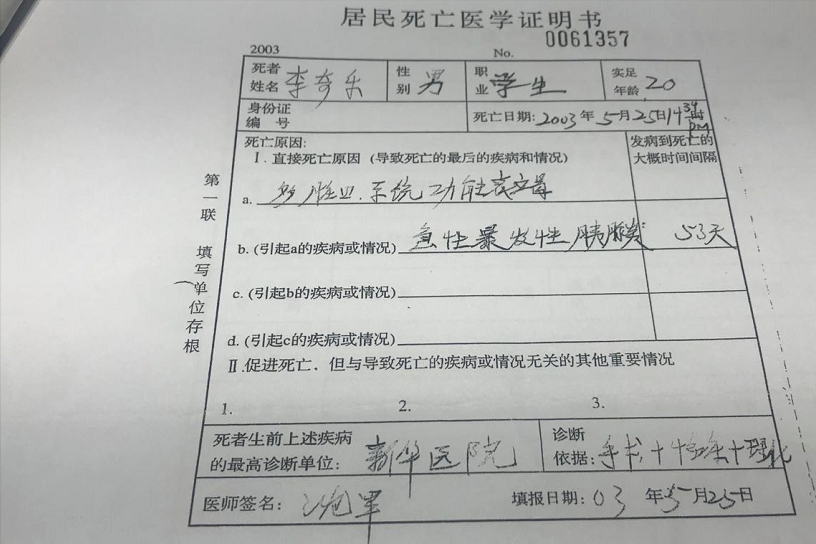 居民死亡医学证明书
2003 No. 0061357
死者姓名 李奇乐 性别 男 职业 学生 实足年龄 20
身份证编号 死亡日期: 2003年5月25日14 34时 PM
死亡原因: 发病到死亡的大概时间间隔
I. 直接死亡原因 (导致死亡的最后的疾病和情况)
a. 多脏器系统功能衰竭
b. (引起a的疾病或情况) 急性暴发性胰腺炎 53天
c. (引起b的疾病或情况)
d. (引起c的疾病或情况)
II.促进死亡,但与导致死亡的疾病或情况无关的其他重要情况
1. 2. 3.
死者生前上述疾病的最高诊断单位: 新华医院 诊断依据: 手术+
医师签名: 填报日期: 03年5月25日
第一联 填写单位存根